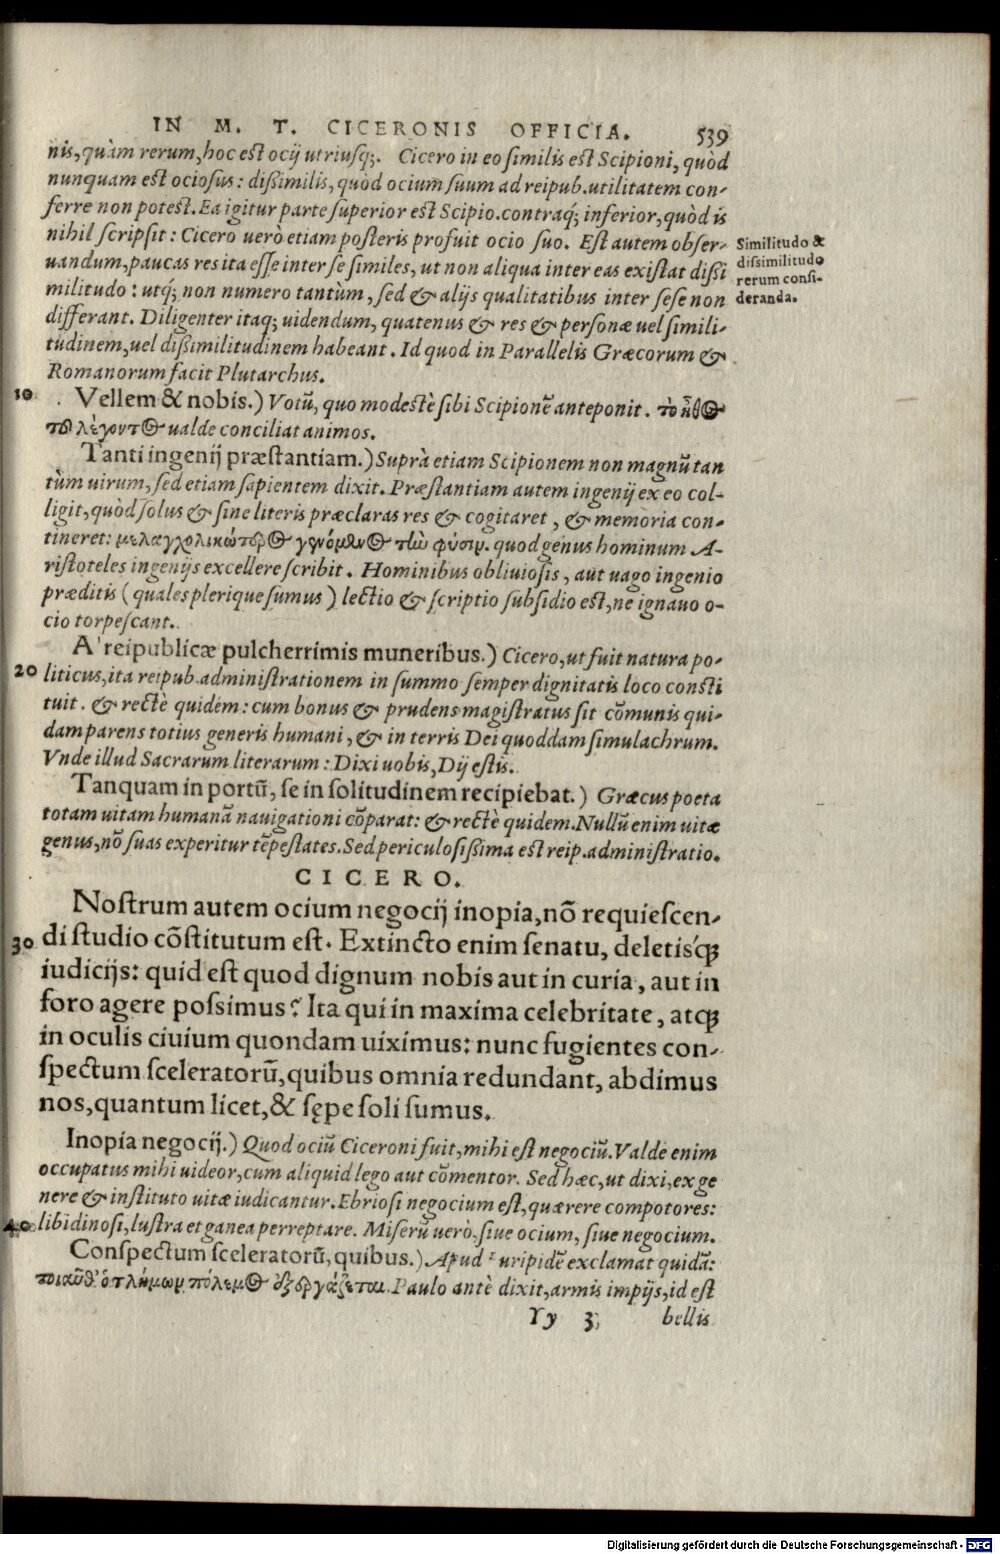 IN M. T. CICERONIS OFFICIA. 539
nis, quàm rerum, hoc est ocij utriusq;. Cicero in eo similis est Scipioni, quòd
nunquam est ociosus: dißimilis, quòd ocium suum ad reipub. utilitatem con-
ferre non potest. Ea igitur parte superior est Scipio. contraq; inferior, quòd is
nihil scripsit: Cicero uerò etiam posteris profuit ocio suo. Est autem obser-
uandum, paucas res ita esse inter se similes, ut non aliqua inter eas existat dißi
militudo: utq; non numero tantùm, sed & alijs qualitatibus inter sese non
differant. Diligenter itaq; uidendum, quatenus & res & personæ uel simili-
tudinem, uel dißimilitudinem habeant. Id quod in Parallelis Græcorum &
Romanorum facit Plutarchus.
Similitudo &
dissimilitudo
rerum consi-
deranda.
10 Vellem & nobis.) Votũ, quo modestè sibi Scipionẽ anteponit. τὸ ἦθος
τοῦ λέγοντος ualde conciliat animos.
Tanti ingenij præstantiam.) Suprà etiam Scipionem non magnũ tan
tùm uirum, sed etiam sapientem dixit. Præstantiam autem ingenij ex eo col-
ligit, quòd solus & sine literis præclaras res & cogitaret, & memoria con-
tineret: μελαγχολικώτερος γενόμενος τὴν φύσιν. quod genus hominum A-
ristoteles ingenijs excellere scribit. Hominibus obliuiosis, aut uago ingenio
præditis (quales plerique sumus) lectio & scriptio subsidio est, ne ignauo o-
cio torpescant.
A' reipublicæ pulcherrimis muneribus.) Cicero, ut fuit natura po-
20 liticus, ita reipub. administrationem in summo semper dignitatis loco consti
tuit. & rectè quidem: cum bonus & prudens magistratus sit cõmunis qui-
dam parens totius generis humani, & in terris Dei quoddam simulachrum.
Vnde illud Sacrarum literarum: Dixi uobis, Dij estis.
Tanquam in portũ, se in solitudinem recipiebat.) Græcus poeta
totam uitam humanã nauigationi cõparat: & rectè quidem. Nullũ enim uitæ
genus, nõ suas experitur tẽpestates. Sed periculosißima est reip. administratio.
CICERO.
Nostrum autem ocium negocij inopia, nõ requiescen-
30 di studio cõstitutum est. Extincto enim senatu, deletisq́;
iudicijs: quid est quod dignum nobis aut in curia, aut in
foro agere possimus? Ita qui in maxima celebritate, atq;
in oculis ciuium quondam uiximus: nunc fugientes con-
spectum sceleratorũ, quibus omnia redundant, abdimus
nos, quantum licet, & sępe soli sumus.
Inopia negocij.) Quod ociũ Ciceroni fuit, mihi est negociũ. Valde enim
occupatus mihi uideor, cum aliquid lego aut cõmentor. Sed hæc, ut dixi, ex ge
nere & instituto uitæ iudicantur. Ebriosi negocium est, quærere compotores:
40 libidinosi, lustra et ganea perreptare. Miserũ uerò, siue ocium, siue negocium.
Conspectum sceleratorũ, quibus.) Apud Euripidẽ exclamat quidã:
τοιαῦθ' ὁ τλήμων πόλεμος ἐξεργάζεται. Paulo antè dixit, armis impijs, id est
Yy 3 bellis
Digitalisierung gefördert durch die Deutsche Forschungsgemeinschaft - DFG